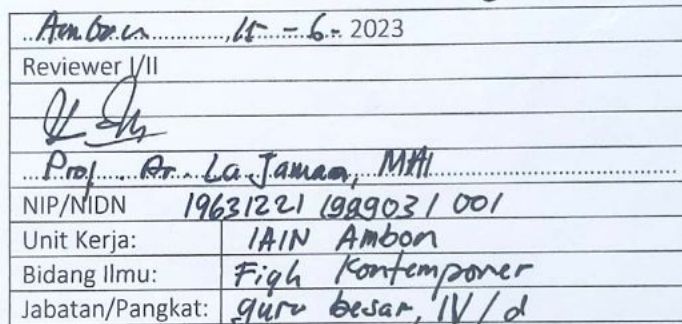 Ambon, 15 - 6 - 2023
Reviewer I/II
Prof. Dr. La Jamaa, MHI
NIP/NIDN 19631221 199903 1 001
Unit Kerja: IAIN Ambon
Bidang Ilmu: Fiqh Kontemporer
Jabatan/Pangkat: guru besar, IV/d